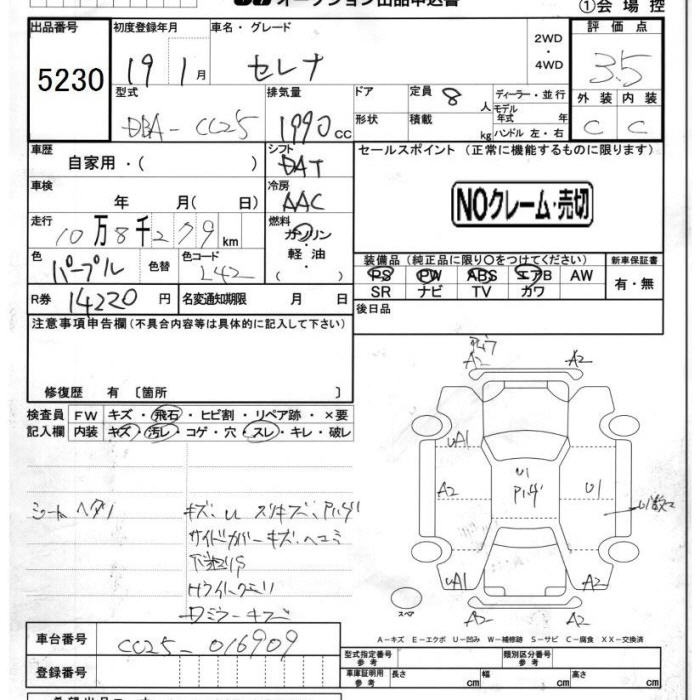 オークション出品申込書
①会場控
出品番号
5230
初度登録年月
19 1月
車名・グレード
セレナ
2WD
・
4WD
評価点
3.5
型式
DBA-CC25
排気量
1990cc
ドア
形状
定員 8人
積載 kg
ディーラー・並行
モデル年式 年
ハンドル 左・右
外装 内装
C C
車歴
自家用・( )
シフト
DAT
セールスポイント(正常に機能するものに限ります)
NOクレーム・売切
車検
年 月( 日)
冷房
AAC
走行
10万8千279km
燃料
ガソリン
軽・油
( )
色
パープル
色替
色コード
L42
装備品(純正品に限り○をつけてください)
PS PW ABS エアB AW
SR ナビ TV カワ
新車保証書
有・無
R券 14220円
名変通知期限 月 日
後日品
注意事項申告欄(不具合内容等は具体的に記入して下さい)
修復歴 有〔箇所 〕
検査員
記入欄
FW キズ・飛石・ヒビ割・リペア跡・×要
内装 キズ・汚レ・コゲ・穴・スレ・キレ・破レ
シートヘタリ
キズ・U スリキズ、
サイドカバーキズ・ヘコミ
A2 A2
UA1
A2
U1
U1
UA1 A2
A2 A2
スペア
A-キズ E-エクボ U-凹み W-補修跡 S-サビ C-腐食 XX-交換済
車台番号
CC25-016909
登録番号
型式指定番号
参考
類別区分番号
参考
車庫証明用
参考
長さ cm
幅 cm
高さ cm